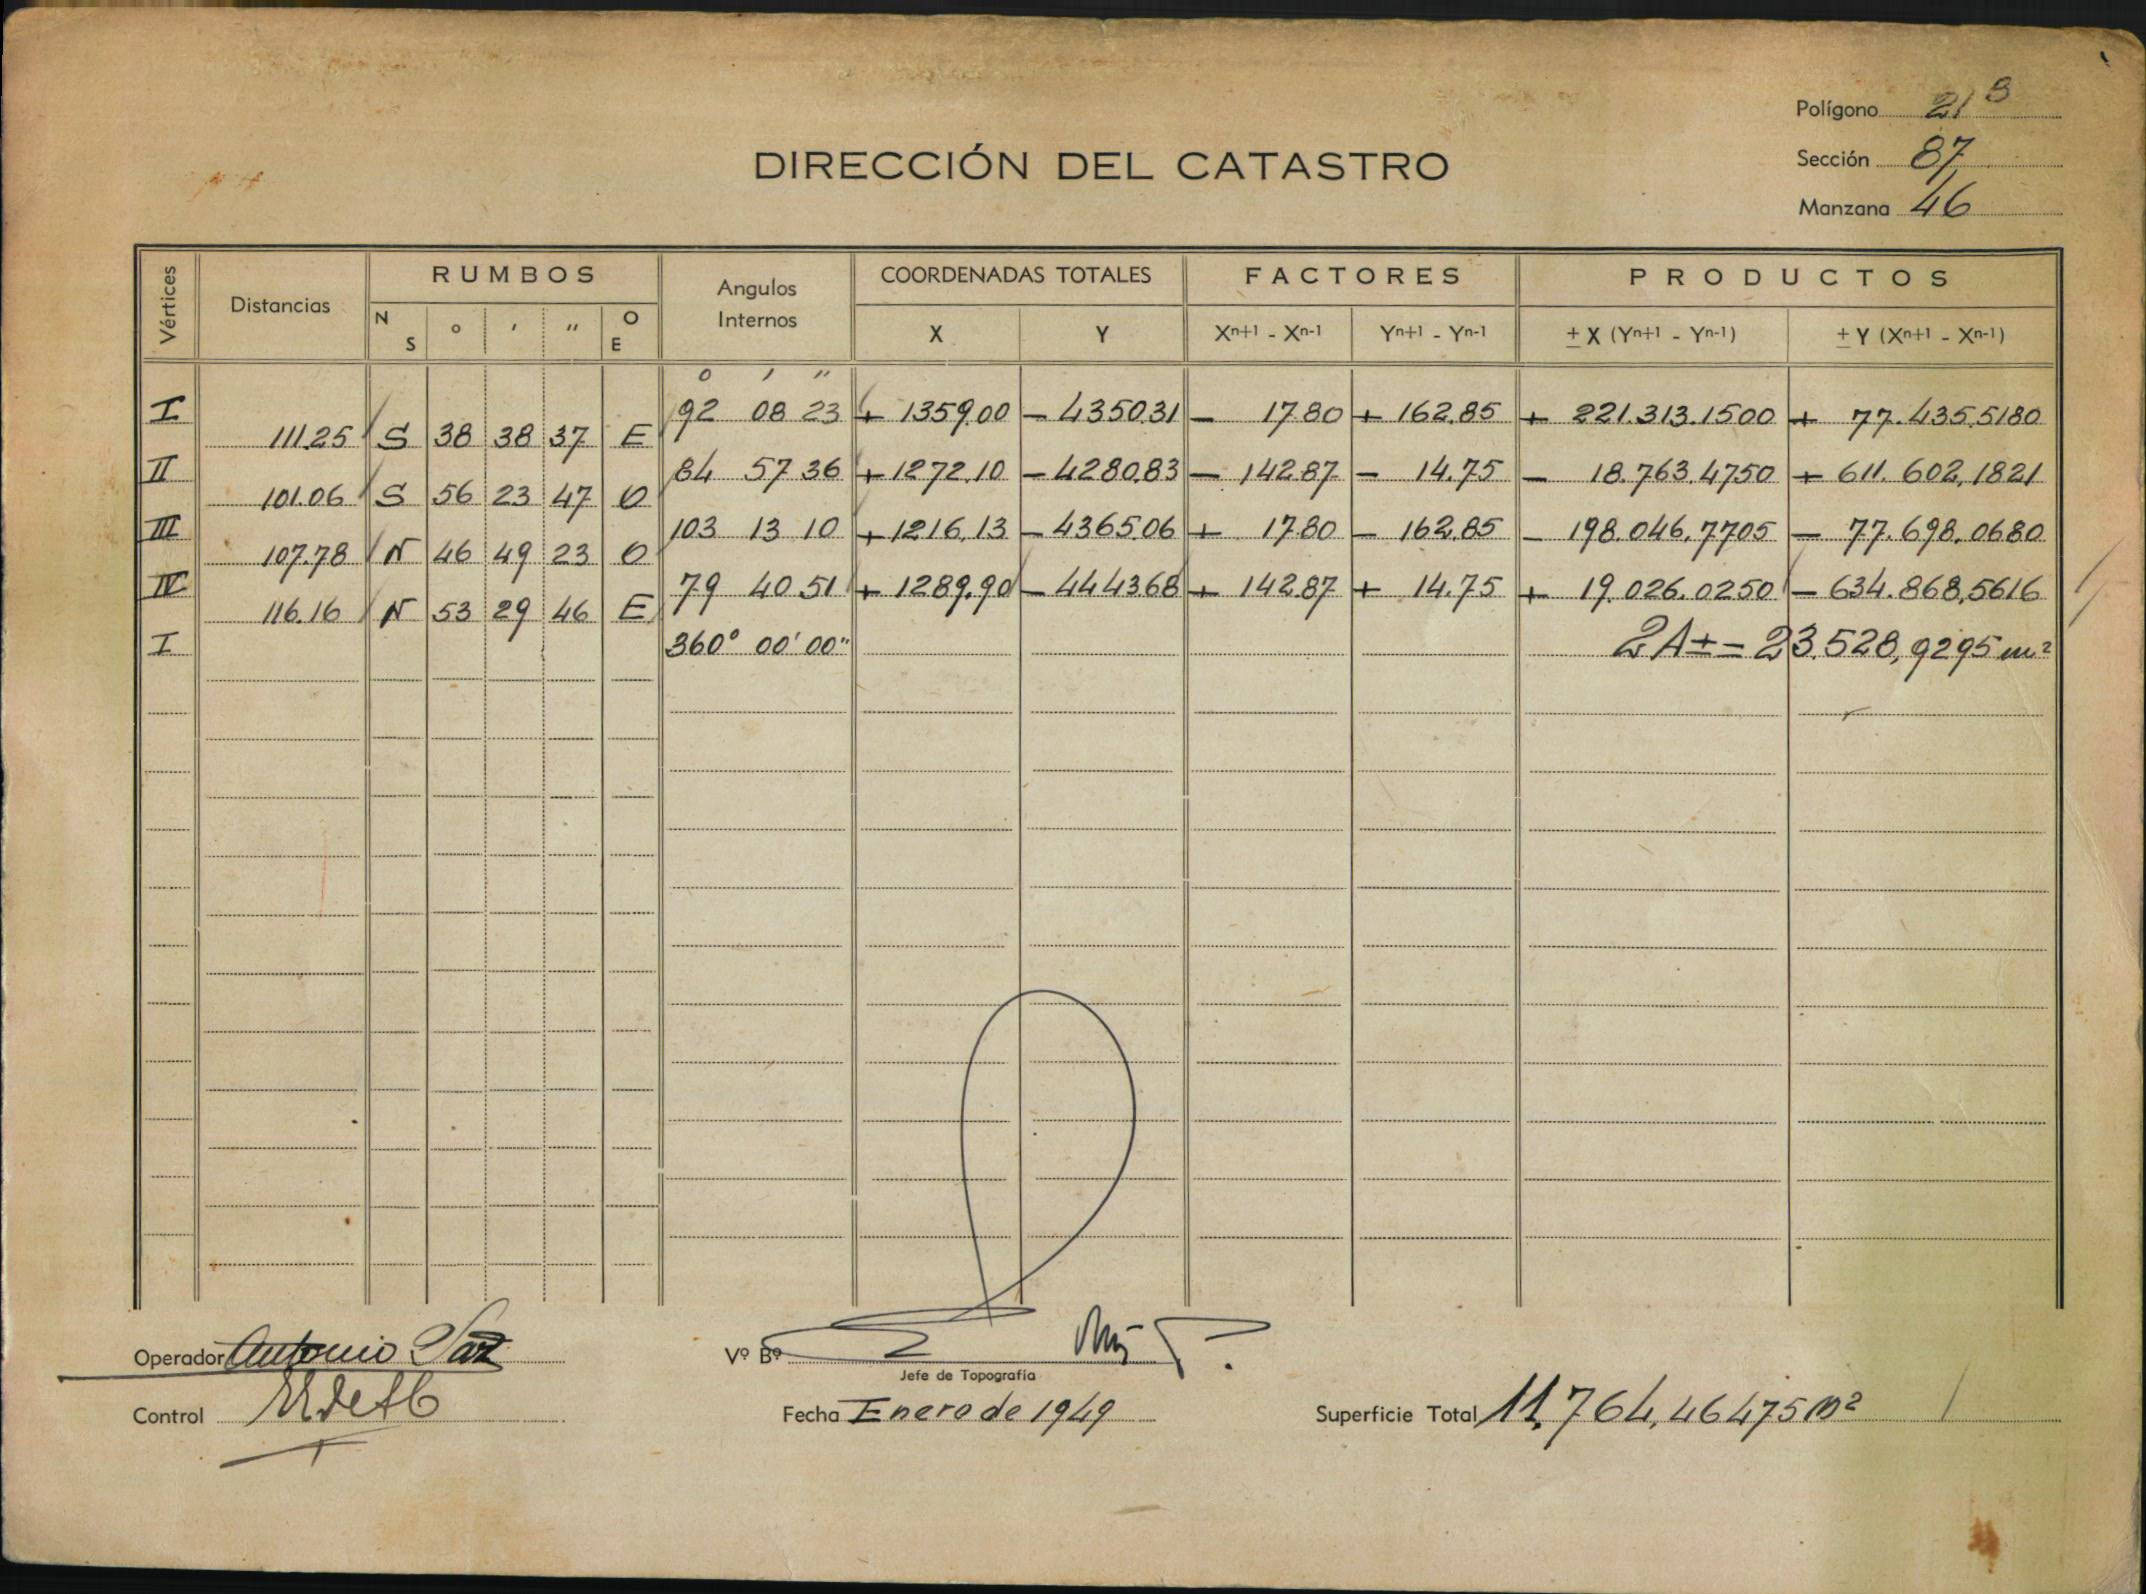 Polígono 21 B
Sección 87
Manzana 46
DIRECCIÓN DEL CATASTRO
Vértices Distancias RUMBOS Angulos Internos COORDENADAS TOTALES FACTORES PRODUCTOS
N S ° ' " O E X Y Xn+1 - Xn-1 Yn+1 - Yn-1 ± X (Yn+1 - Yn-1) ± Y (Xn+1 - Xn-1)
° ' "
I 92 08 23 + 1359.00 - 4350.31 - 17.80 + 162.85 + 221.313.1500 + 77.435.5180
111.25 S 38 38 37 E
II 84 57 36 + 1272.10 - 4280.83 - 142.87 - 14.75 - 18.763.4750 + 611.602,1821
101.06 S 56 23 47 O
III 103 13 10 + 1216.13 - 4365.06 + 17.80 - 162.85 - 198.046.7705 - 77.698.0680
107.78 N 46 49 23 O
IV 79 40 51 + 1289.90 - 4443.68 + 142.87 + 14.75 + 19.026.0250 - 634.868,5616
116.16 N 53 29 46 E
I 360° 00' 00" 2A± = 23.528,9295 m²
Operador Antonio
Vº Bº
Jefe de Topografía
Control
Fecha Enero de 1949
Superficie Total 11.764,46475 m²